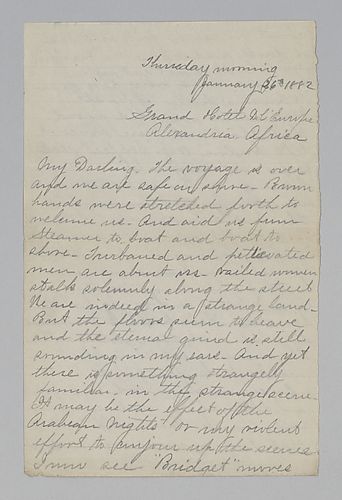 Thursday morning
January 26th 1882
Grand Hotel D L'Europe
Alexandria Africa
My Darling. The voyage is over
and we are safe on shore - Brown
hands were stretched forth to
welcome us - And aid us from
Steamer to boat and boat to
shore - Turbaned and petticoated
men are about us - Vailed women
stalk solemnly along the street
We are indeed in a strange land -
But the floors seem to heave
and the eternal grind is still
sounding in my ears - And yet
there is something strangely
familiar in the strange scene.
It may be the effect of the
Arabian Nights or my violent
effort to conjour up the scenes
I now see "Bridget" moves